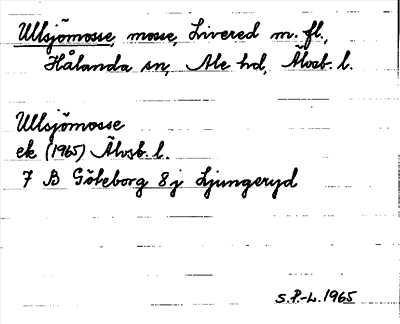 Ullsjömosse, mosse, Livered m. fl.,
Hålanda sn, Ale hd, Älvsb. l.
Ullsjömosse
ek (1965) Älvsb. l.
7 B Göteborg 8 j Ljungeryd
S.P.-L. 1965